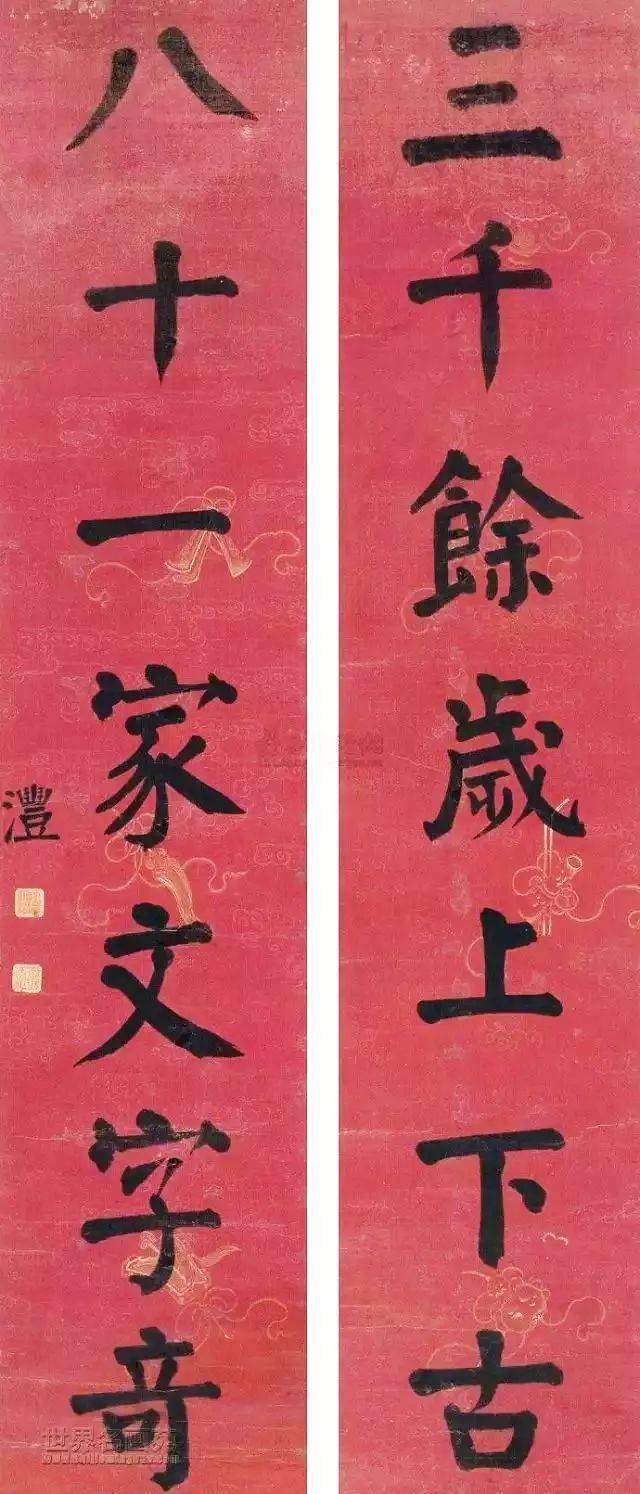 三千餘歲上下古
八十一家文字奇
澧
世界名画苑